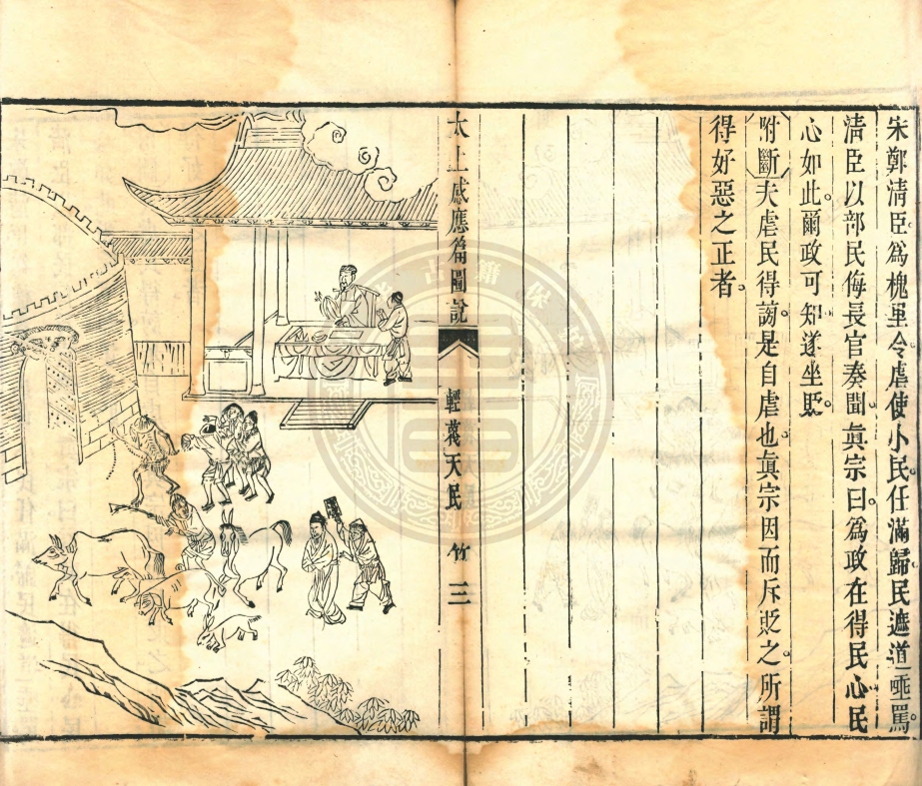 宋鄭清臣爲槐里令虐使小民任滿歸民遮道唾罵
清臣以部民侮長官奏聞眞宗曰爲政在得民心民
心如此爾政可知遂坐貶
附斷夫虐民得謗是自虐也眞宗因而斥貶之所謂
得好惡之正者
太上感應篇圖說
輕蔑天民
竹三